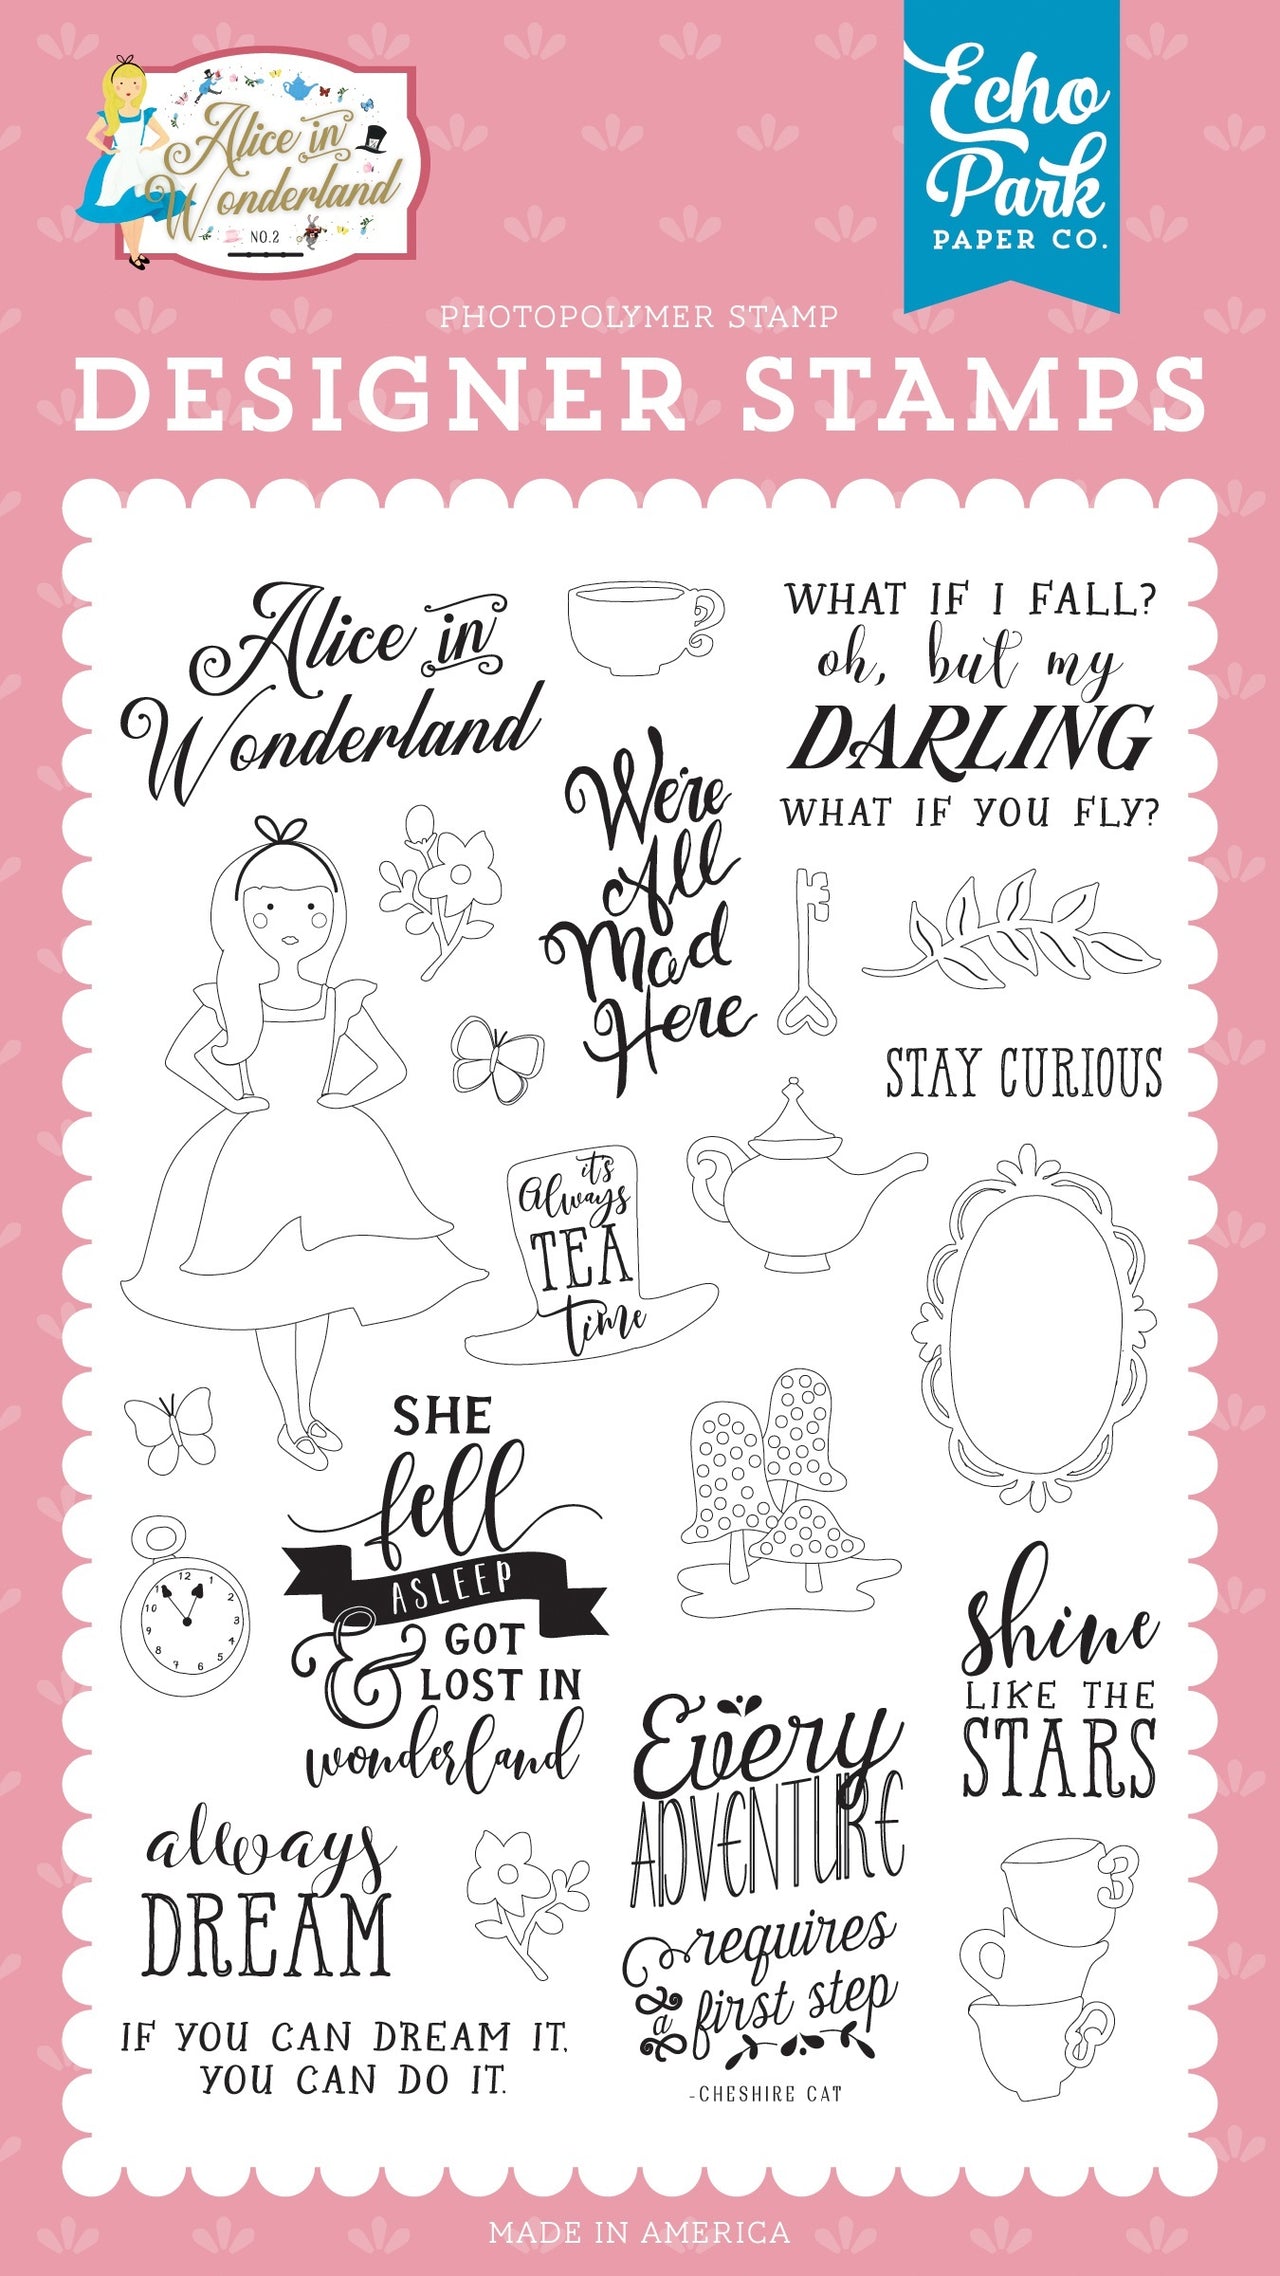 Alice in
Wonderland
NO.2
Echo
Park
PAPER CO.
PHOTOPOLYMER STAMP
DESIGNER STAMPS
Alice in
Wonderland
WHAT IF I FALL?
oh, but my
DARLING
WHAT IF YOU FLY?
We're
All
Mad
Here
STAY CURIOUS
it's
Always
TEA
time
SHE
fell
ASLEEP
& GOT
LOST IN
wonderland
12
1
2
3
4
5
6
7
8
9
10
11
shine
LIKE THE
STARS
Every
ADVENTURE
requires
a first step
-CHESHIRE CAT
always
DREAM
IF YOU CAN DREAM IT,
YOU CAN DO IT.
MADE IN AMERICA